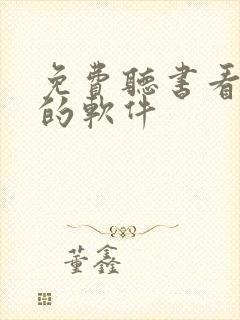 免費聽書看
的軟件
董鑫